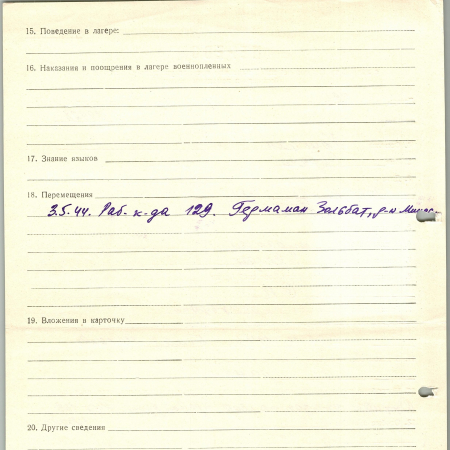 15. Поведение в лагере:
16. Наказания и поощрения в лагере военнопленных
17. Знание языков
18. Перемещения
3.5.44. Раб. к-да 129. Зольбат, р-н
19. Вложения в карточку
20. Другие сведения